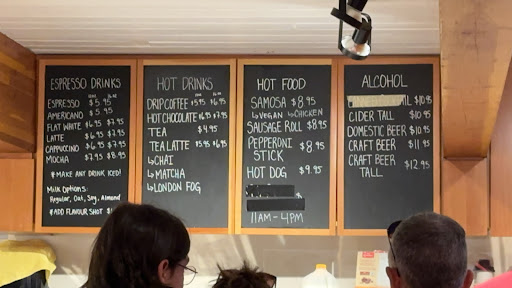 ESPRESSO DRINKS
ESPRESSO $5.95
AMERICANO $5.95
FLAT WHITE $6.95 $7.95
LATTE $6.95 $7.95
CAPPUCCINO $6.95 $7.95
MOCHA $7.95 $8.95
*MAKE ANY DRINK ICED!
Milk Options:
Regular, Oat, Soy, Almond
*ADD FLAVOUR SHOT
HOT DRINKS
DRIP COFFEE $5.95 $6.95
HOT CHOCOLATE $6.95 $7.95
TEA $4.95
TEA LATTE $5.95 $6.95
↳CHAI
↳MATCHA
↳LONDON FOG
HOT FOOD
SAMOSA $8.95
↳VEGAN ↳CHICKEN
SAUSAGE ROLL $8.95
PEPPERONI STICK $8.95
HOT DOG $9.95
11AM-4PM
ALCOHOL
$10.95
CIDER TALL $10.95
DOMESTIC BEER $10.95
CRAFT BEER $11.95
CRAFT BEER TALL $12.95